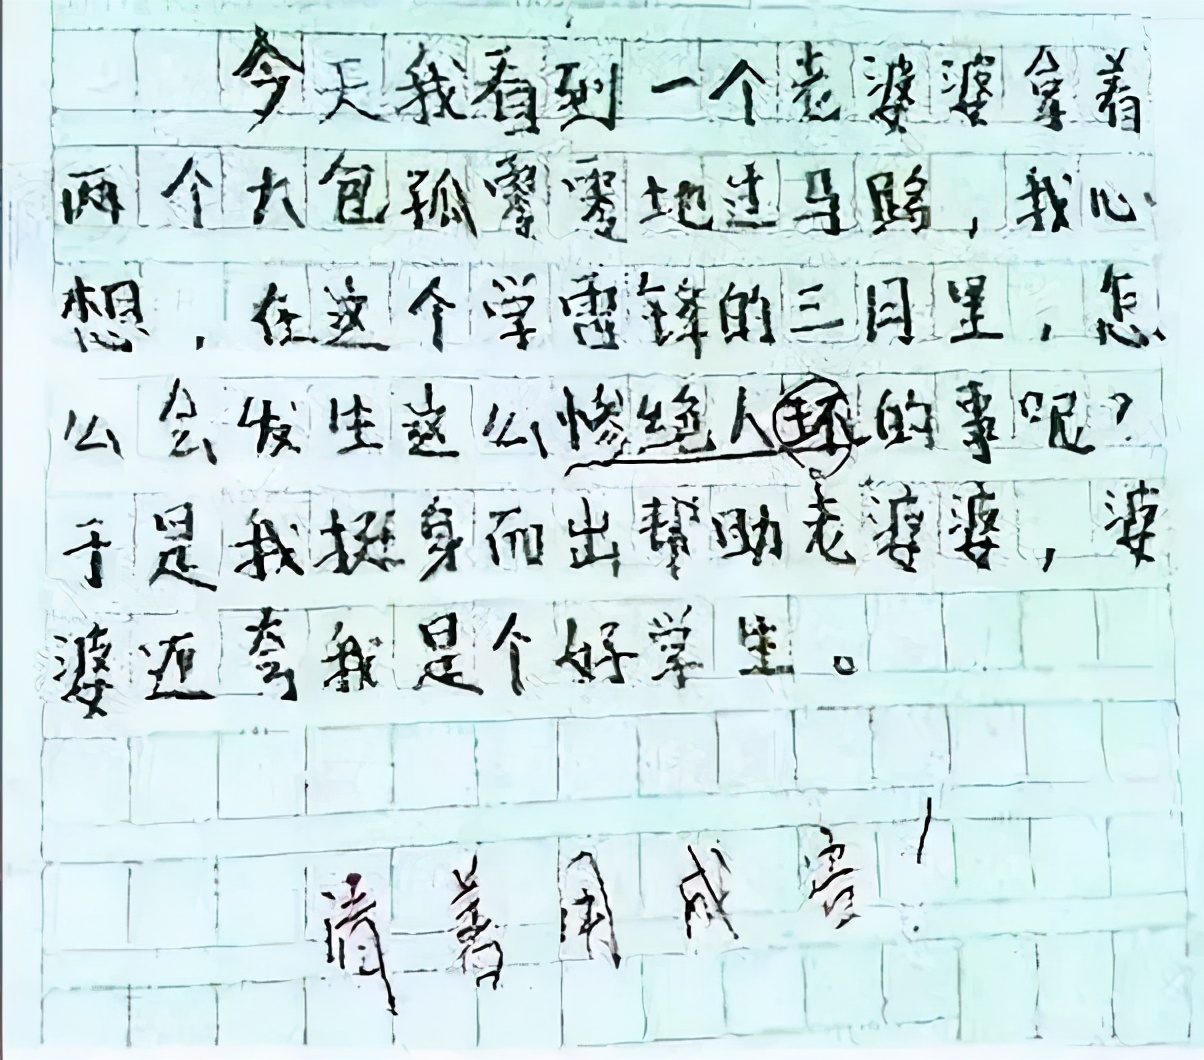 今天我看到一个老婆婆拿着
两个大包孤零零地过马路，我心
想，在这个学雷锋的三月里，怎
么会发生这么惨绝人环的事呢？
于是我挺身而出帮助老婆婆，婆
婆还夸我是个好学生。
请善用成语！